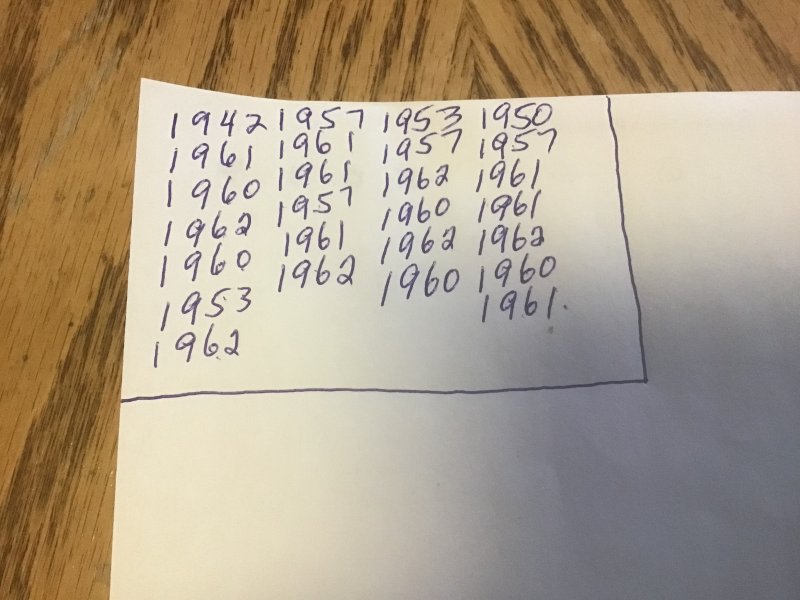 1942 1957 1953 1950
1961 1961 1957 1957
1960 1961 1962 1961
1962 1957 1960 1961
1960 1961 1962 1962
1953 1962 1960 1960
1962 1961.